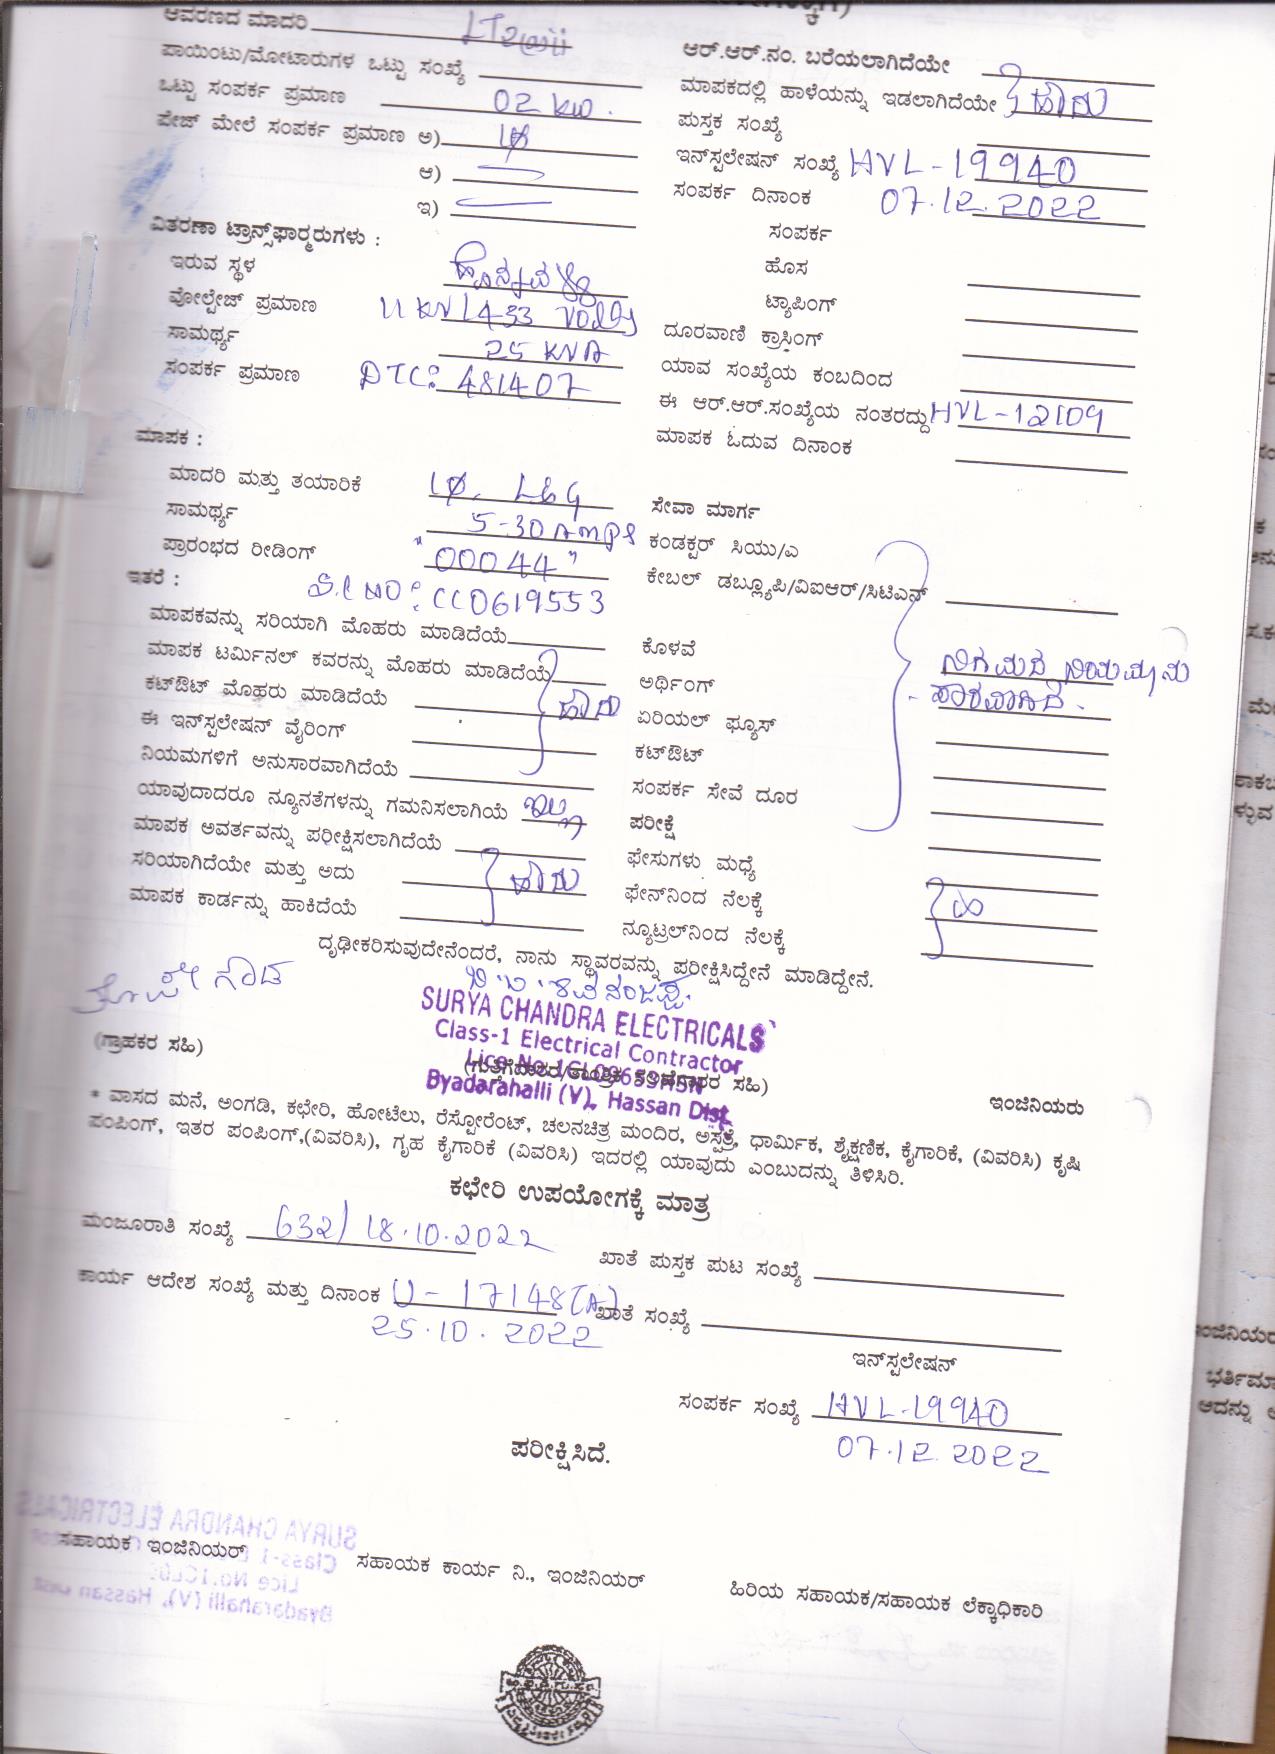 ಆವರಣದ ಮಾದರಿ LT2aii
ಪಾಯಿಂಟು/ಮೋಟಾರುಗಳ ಒಟ್ಟು ಸಂಖ್ಯೆ
ಆರ್.ಆರ್.ನಂ. ಬರೆಯಲಾಗಿದೆಯೇ
ಒಟ್ಟು ಸಂಪರ್ಕ ಪ್ರಮಾಣ 02 kW.
ಮಾಪಕದಲ್ಲಿ ಹಾಳೆಯನ್ನು ಇಡಲಾಗಿದೆಯೇ ಹೌದು
ಪೇಜ್ ಮೇಲೆ ಸಂಪರ್ಕ ಪ್ರಮಾಣ ಅ) 1φ
ಪುಸ್ತಕ ಸಂಖ್ಯೆ
ಆ)
ಇನ್‌ಸ್ಟಲೇಷನ್ ಸಂಖ್ಯೆ HVL-19940
ಇ)
ಸಂಪರ್ಕ ದಿನಾಂಕ 07.12.2022
ವಿತರಣಾ ಟ್ರಾನ್ಸ್‌ಫಾರ್ಮರುಗಳು :
ಸಂಪರ್ಕ
ಇರುವ ಸ್ಥಳ
ಹೊಸ
ವೋಲ್ಟೇಜ್ ಪ್ರಮಾಣ 11 KV/433 Volts
ಟ್ಯಾಪಿಂಗ್
ಸಾಮರ್ಥ್ಯ 25 KVA
ದೂರವಾಣಿ ಕ್ರಾಸಿಂಗ್
ಸಂಪರ್ಕ ಪ್ರಮಾಣ DTC: 481407
ಯಾವ ಸಂಖ್ಯೆಯ ಕಂಬದಿಂದ
ಈ ಆರ್.ಆರ್.ಸಂಖ್ಯೆಯ ನಂತರದ್ದು HVL-12109
ಮಾಪಕ :
ಮಾಪಕ ಓದುವ ದಿನಾಂಕ
ಮಾದರಿ ಮತ್ತು ತಯಾರಿಕೆ 1φ, L&G
ಸೇವಾ ಮಾರ್ಗ
ಸಾಮರ್ಥ್ಯ 5-30 Amps
ಕಂಡಕ್ಟರ್ ಸಿಯು/ಎ
ಪ್ರಾರಂಭದ ರೀಡಿಂಗ್ "00044"
ಕೇಬಲ್ ಡಬ್ಲ್ಯೂಪಿ/ವಿಐಆರ್/ಸಿಟಿಎನ್
ಇತರೆ : S.l NO: CC0619553
ಮಾಪಕವನ್ನು ಸರಿಯಾಗಿ ಮೊಹರು ಮಾಡಿದೆಯೆ
ಕೊಳವೆ
ಮಾಪಕ ಟರ್ಮಿನಲ್ ಕವರನ್ನು ಮೊಹರು ಮಾಡಿದೆಯೆ
ಅರ್ಥಿಂಗ್ ನಿಗಮದ ನಿಯಮಾನು
ಕಟ್‌ಔಟ್ ಮೊಹರು ಮಾಡಿದೆಯೆ ಹೌದು
ಏರಿಯಲ್ ಫ್ಯೂಸ್ - ಸಾರವಾಗಿದೆ.
ಈ ಇನ್‌ಸ್ಟಲೇಷನ್ ವೈರಿಂಗ್
ಕಟ್‌ಔಟ್
ನಿಯಮಗಳಿಗೆ ಅನುಸಾರವಾಗಿದೆಯೆ
ಸಂಪರ್ಕ ಸೇವೆ ದೂರ
ಯಾವುದಾದರೂ ನ್ಯೂನತೆಗಳನ್ನು ಗಮನಿಸಲಾಗಿಯೆ ಇಲ್ಲ
ಪರೀಕ್ಷೆ
ಮಾಪಕ ಅವರ್ತವನ್ನು ಪರೀಕ್ಷಿಸಲಾಗಿದೆಯೆ
ಫೇಸುಗಳು ಮಧ್ಯೆ
ಸರಿಯಾಗಿದೆಯೇ ಮತ್ತು ಅದು ಹೌದು
ಫೇಸ್‌ನಿಂದ ನೆಲಕ್ಕೆ
ಮಾಪಕ ಕಾರ್ಡನ್ನು ಹಾಕಿದೆಯೆ
ನ್ಯೂಟ್ರಲ್‌ನಿಂದ ನೆಲಕ್ಕೆ
ದೃಢೀಕರಿಸುವುದೇನೆಂದರೆ, ನಾನು ಸ್ಥಾವರವನ್ನು ಪರೀಕ್ಷಿಸಿದ್ದೇನೆ ಮಾಡಿದ್ದೇನೆ.
SURYA CHANDRA ELECTRICALS
Class-1 Electrical Contractor
(ಗ್ರಾಹಕರ ಸಹಿ)
Byadarahalli (V), Hassan Dist.
ಇಂಜಿನಿಯರು
* ವಾಸದ ಮನೆ, ಅಂಗಡಿ, ಕಛೇರಿ, ಹೋಟೆಲು, ರೆಸ್ಟೋರೆಂಟ್, ಚಲನಚಿತ್ರ ಮಂದಿರ, ಅಸ್ಪತ್ರೆ, ಧಾರ್ಮಿಕ, ಶೈಕ್ಷಣಿಕ, ಕೈಗಾರಿಕೆ, (ವಿವರಿಸಿ) ಕೃಷಿ
ಪಂಪಿಂಗ್, ಇತರ ಪಂಪಿಂಗ್,(ವಿವರಿಸಿ), ಗೃಹ ಕೈಗಾರಿಕೆ (ವಿವರಿಸಿ) ಇದರಲ್ಲಿ ಯಾವುದು ಎಂಬುದನ್ನು ತಿಳಿಸಿರಿ.
ಕಛೇರಿ ಉಪಯೋಗಕ್ಕೆ ಮಾತ್ರ
ಮಂಜೂರಾತಿ ಸಂಖ್ಯೆ 632/ 18.10.2022
ಖಾತೆ ಪುಸ್ತಕ ಪುಟ ಸಂಖ್ಯೆ
ಕಾರ್ಯ ಆದೇಶ ಸಂಖ್ಯೆ ಮತ್ತು ದಿನಾಂಕ U-17148(A)
ಖಾತೆ ಸಂಖ್ಯೆ
25.10.2022
ಇನ್‌ಸ್ಟಲೇಷನ್
ಸಂಪರ್ಕ ಸಂಖ್ಯೆ HVL-19940
07.12.2022
ಪರೀಕ್ಷಿಸಿದೆ.
ಸಹಾಯಕ ಇಂಜಿನಿಯರ್
ಸಹಾಯಕ ಕಾರ್ಯ ನಿ., ಇಂಜಿನಿಯರ್
ಹಿರಿಯ ಸಹಾಯಕ/ಸಹಾಯಕ ಲೆಕ್ಕಾಧಿಕಾರಿ